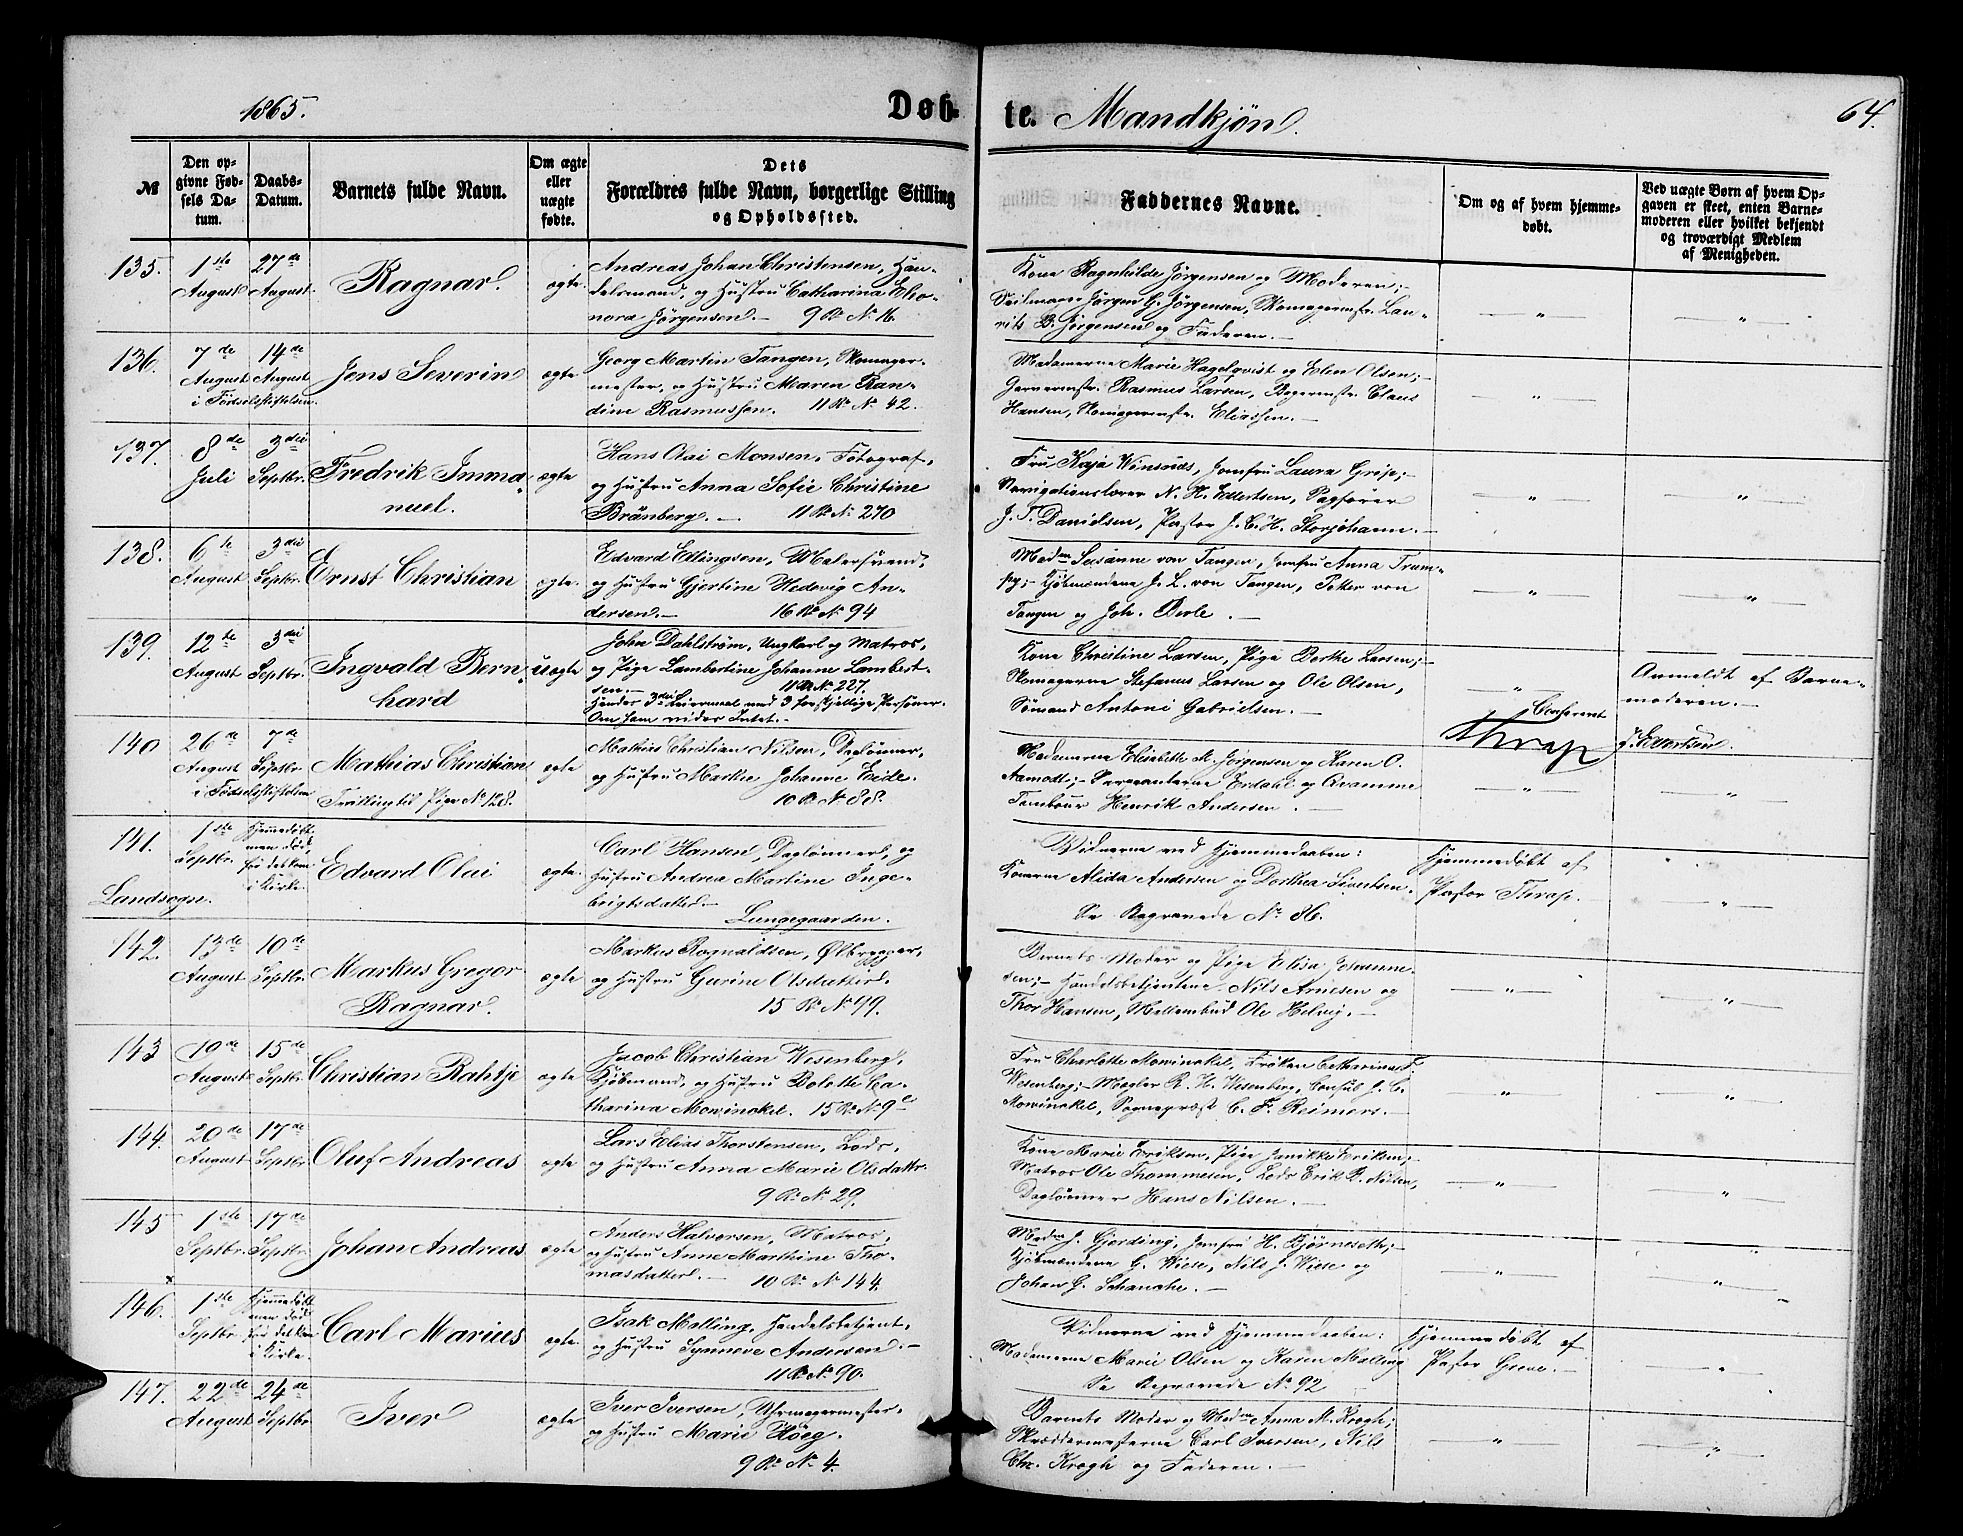 1865.
Døb-
te. Mandkjøn.
64.
№
Den op-
givne Fød-
sels Da-
tum.
Daabs-
Datum.
Barnets fulde Navn.
Om ægte
eller
uægte
fødte.
Dets
Forældres fulde Navn, borgerlige Stilling
og Opholdssted.
Faddernes Navne.
Om og af hvem hjemme-
døbt.
Ved uægte Børn af hvem Op-
gaven er skeet, enten Barne-
moderen eller hvilket bekjendt
og troværdigt Medlem
af Menigheden.
135.
1ste
August
27de
August
Ragnar.
ægte.
Andreas Johan Christensen, Han-
delsmand, og Hustru Catharina Eleo-
nora Jørgensen. — 9 R. № 16.
Kone Ragnhilde Jørgensen og Moderen;-
Seilmager Jørgen G. Jørgensen, Skomagermstr. Lau-
rits B. Jørgensen og Faderen. —
136.
7de
August
14de
August
i Fødselsstiftelsen.
Jens Severin
ægte
Georg Martin Tangen, Skomager-
mester, og Hustru Maren Ran-
dine Rasmussen. 11 R. № 42.
Madamerne Marie Hagelqvist og Elen Olsen;-
Garvermstr. Rasmus Larsen, Bagermstr. Claus
Hansen, Skomagermstr. Eliassen. —
137.
8de
Juli
3die
Septbr.
Fredrik Imma-
nuel.
ægte
Hans Olai Monsen, Fotograf,
og Hustru Anna Sofie Christine
Brånberg. — 11 R. № 270
Fru Kaja Winsnæs, Jomfru Laura Greip;-
Navigationslærer N. H. Edlertsen, Pagfører
J. T. Danielsen, Pastor J. C. H. Storjohann. —
138.
6te
August
3die
Septbr.
Ernst Christian
ægte.
Edvard Edlingsen, Malersvend,
og Hustru Gjertine Hedevig An-
dersen. — 16 R. № 94
Madm Susanne von Tangen, Jomfru Anna Trum-
py;- Kjøbmændene J. L. von Tangen, Petter von
Tangen og Joh. Berle. —
139.
12te
August
3die
Septbr.
Ingvald Bern-
hard
uægte
John Dahlstrøm, Ungkarl og Matros,
og Pige Lambertine Johanne Lambert-
sen. — 11 R. № 227.
Hendes 3die Leiermaal med 3 forskjellige Personer.
Om ham vides Intet. —
Kone Christine Larsen, Pige Berthe Larsen;-
Skomagerne Stefanus Larsen og Ole Olsen,
Sømand Antoni Gabrielsen. —
Confereret
Thrap
Anmeldt af Barne-
moderen. —
140
26de
August
7de
Septbr.
i Fødselsstiftelsen
Mathias Christian
Tvilling til Pige № 128.
ægte
Mathias Christian Nilsen, Daglønner,
og Hustru Marthe Johanne Eide.
10 R. № 88.
Madamerne Elisabeth M. Jørgensen og Karen O.
Aamodt;- Sergeanterne Erdahl og Qvamme
Tambour Henrik Andersen. —
141.
Landsogn.
1ste
Septbr.
Hjemmedøbt
men død,
før det kom
i Kirke.
Edvard Olai
ægte.
Carl Hansen, Dagløнner, og
Hustru Andrea Martine Inge-
brigtsdatter. —
Lungegaarden.
Vidnerne ved Hjemmedaaben:
Konerne Alida Andersen og Dorthea Sivertsen.
Se Begravede № 86.
Hjemmedøbt af
Pastor Thrap.
142.
13de
August
10de
Septbr.
Markus Gregor
Ragnar.
ægte
Markus Rognaldsen, Ølbrygger,
og Hustru Gurine Olsdatter.
15 R. № 99.
Barnets Moder og Pige Elisa Johanne-
sen;- Handelsbetjentene Nils Arnesen og
Thor Hansen, Mellembud Ole Helvig. —
143
19de
August
15de
Septbr.
Christian Rahtje
ægte
Jacob Christian Wesenberg,
Kjøbmand, og Hustru Bolette Ca-
tharina Mowinckel. 15 R. № 9
Fru Charlotte Mowinckel, Frøken Catharina F.
Wesenberg;- Mægler R. H. Wesenberg, Consul J. C.
Mowinckel, Sognepræst C. F. Reimers. —
144.
20de
August
17de
Septbr.
Oluf Andreas
ægte
Lars Elias Thorstensen, Lods,
og Hustru Anna Marie Olsdatter.
9 R. № 29.
Kone Marie Eriksen, Pige Janikke Eriksen;
Matros Ole Thommesen, Lods Erik R. Nilsen,
Dagløнner Hans Nilsen. —
145
1ste
Septbr.
17de
Septbr.
Johan Andreas
ægte
Anders Halvorsen, Matros,
og Hustru Anne Marthine Tho-
masdatter. — 10 R. № 144.
Madm J. Gjerding, Jomfru H. Bjørneseth;-
Kjøbmændene G. Wiese, Nils J. Wiese og
Johan G. Schanche. —
146.
1ste
Septbr.
Hjemmedøbt
men død
før det kom
i Kirke
Carl Marius
ægte.
Isak Malling, Handelsbetjent,
og Hustru Synneve Andersen. —
11 R. № 90.
Vidnerne ved Hjemmedaaben:
Madamerne Marie Olsen og Karen Malling
Se Begravede № 92
Hjemmedøbt af
Pastor Greve. —
147.
22de
August
24de
Septbr
Iver
ægte
Iver Iversen, Uhrmagermester,
og Hustru Marie Höeg.
9 R. № 4.
Barnets Moder og Madm Anna M. Krogh;
Skræddermesterne Carl Iversen, Nils
Chr. Krogh og Faderen. —